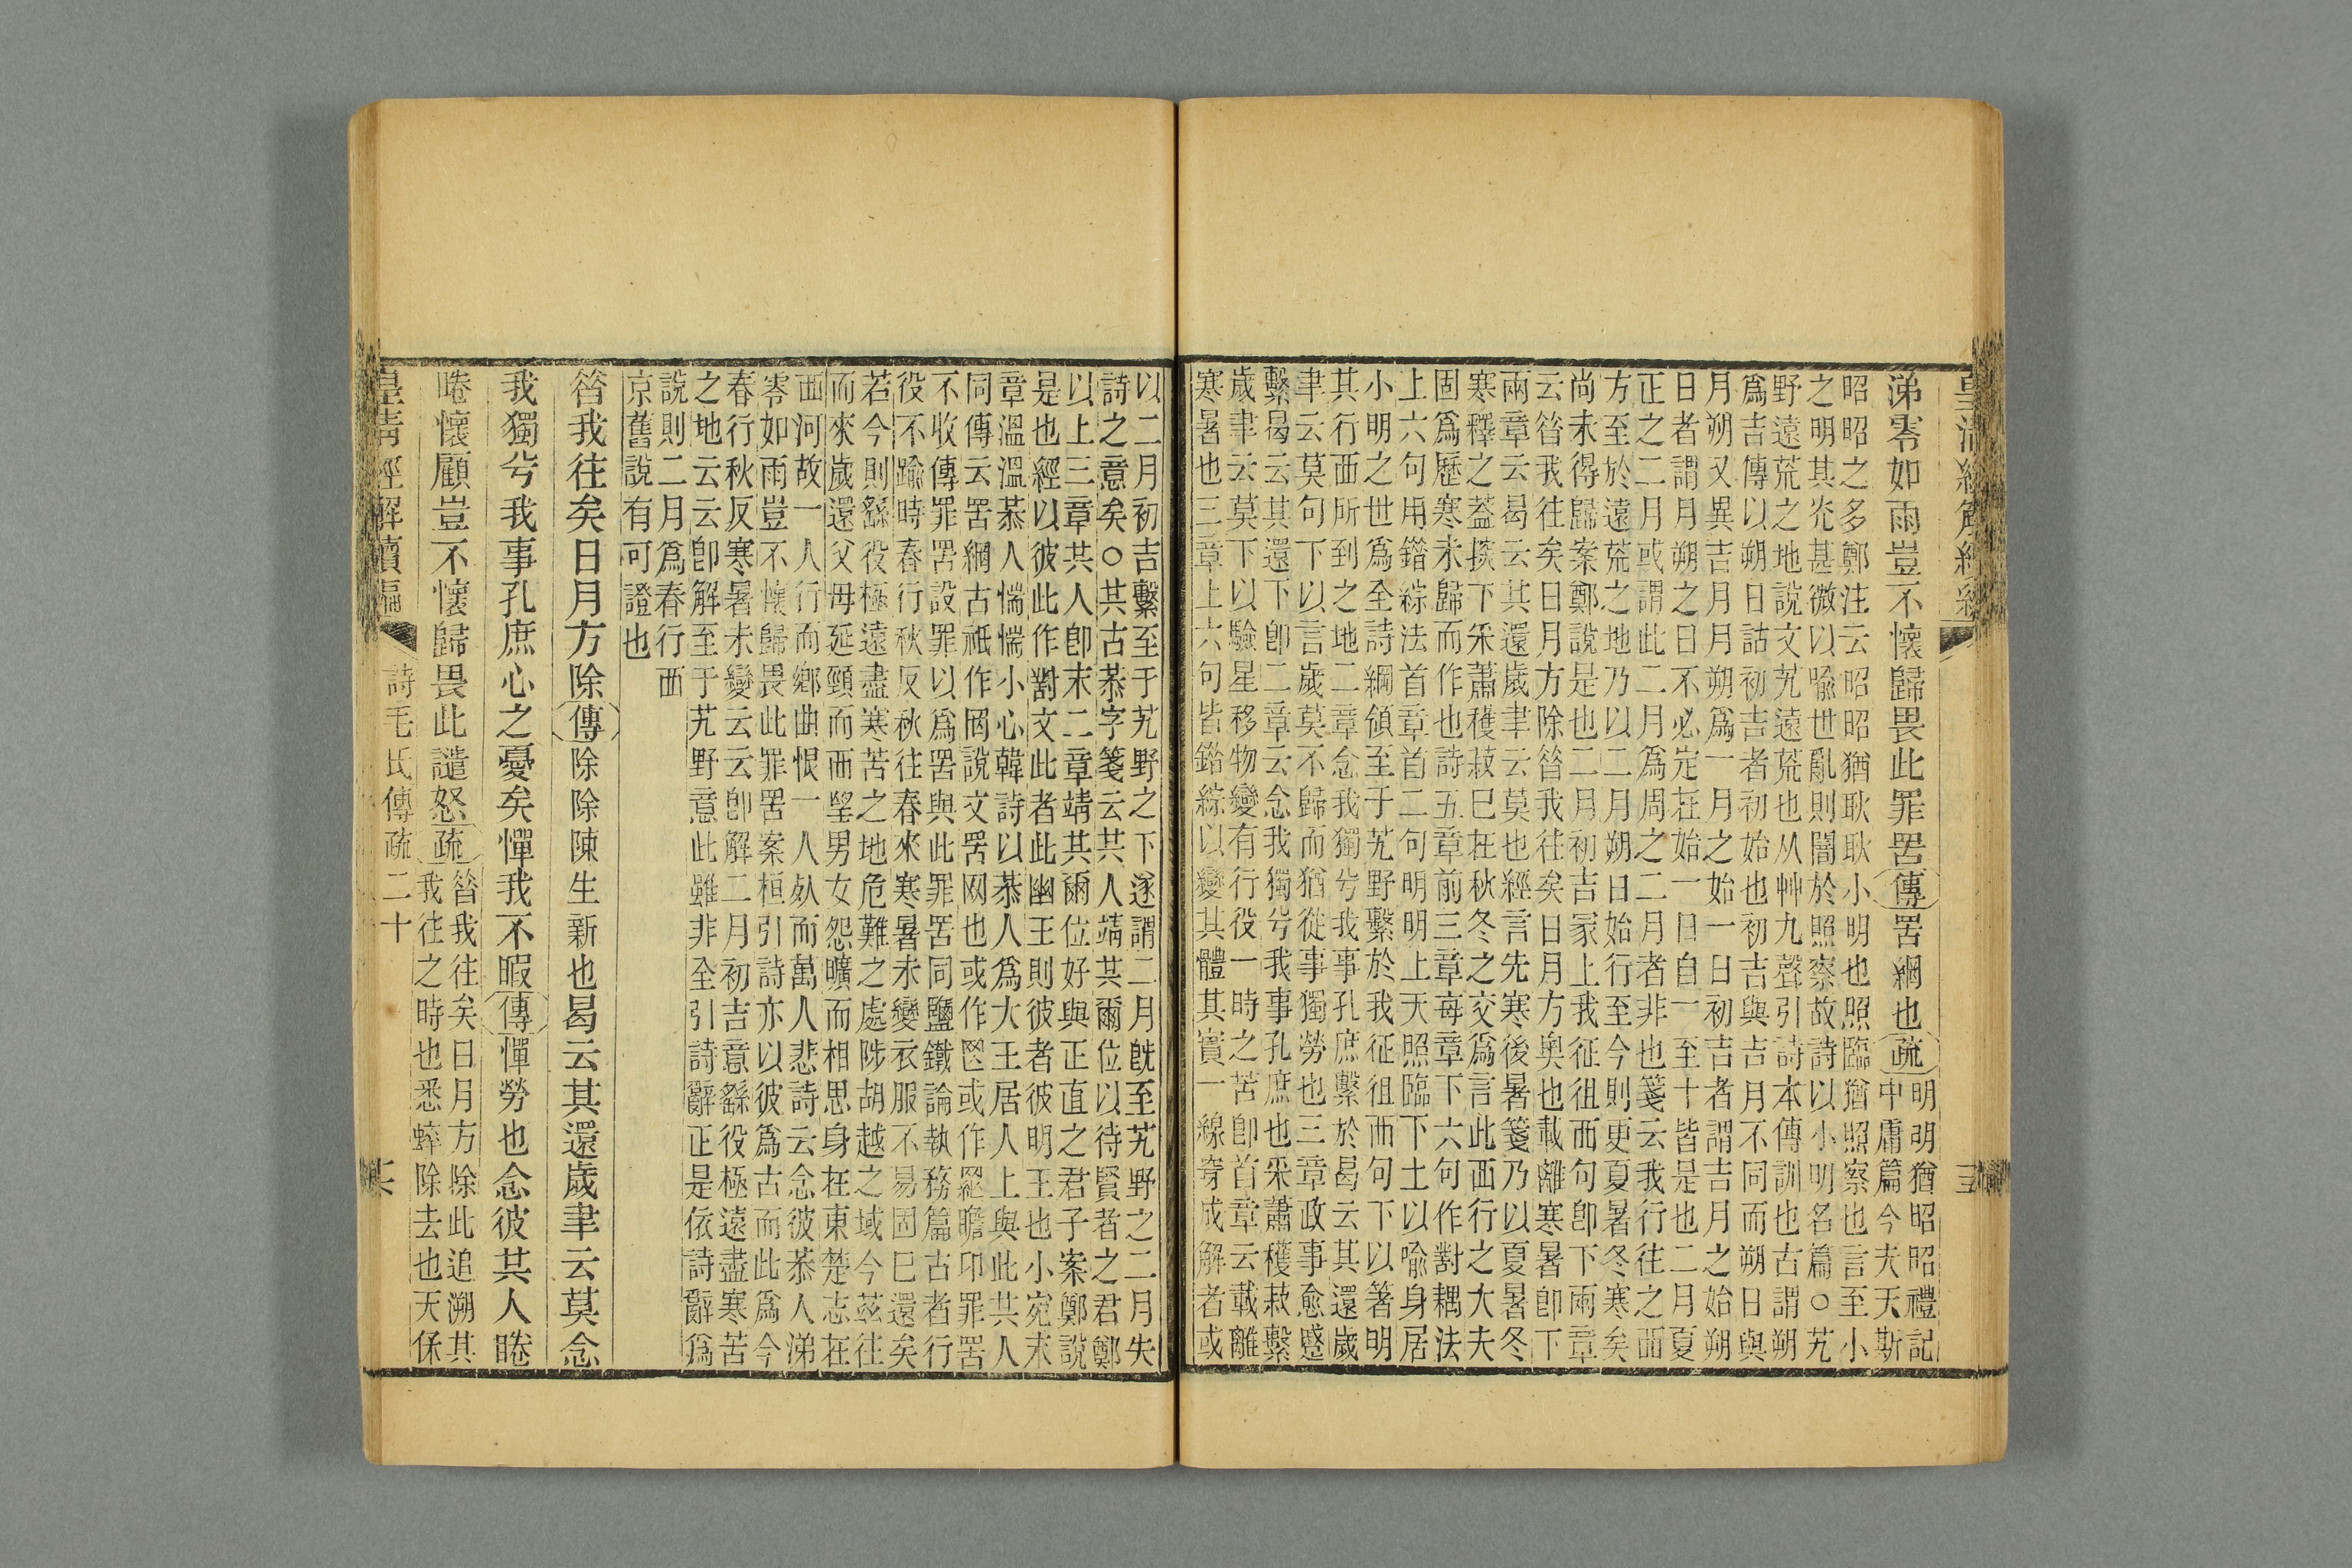 涕零如雨豈不懷歸畏此罪罟傳罟網也疏明明猶昭昭禮記
中庸篇今夫天斯
昭昭之多鄭注云昭昭猶耿耿小明也照臨猶照察也言至小
之明其光甚微以喻世亂則闇於照察故詩以小明名篇○艽
野遠荒之地說文艽遠荒也从艸九聲引詩本傳訓也古謂朔
爲吉傳以朔日詁初吉者初始也初吉與吉月不同而朔日與
月朔又異吉月月朔爲一月之始一日初吉者謂吉月之始朔
日者謂月朔之日不必定在始一日自一至十皆是也二月夏
正之二月或謂此二月爲周之二月者非也箋云我行往之西
方至於遠荒之地乃以二月朔日始行至今則更夏暑冬寒矣
尚未得歸案鄭說是也二月初吉冡上我征徂西句卽下兩章
云昝我往矣日月方除昝我往矣日月方奥也載離寒暑卽下
兩章云曷云其還歲聿云莫也經言先寒後暑箋乃以夏暑冬
寒釋之葢探下采蕭穫菽已在秋冬之交爲言此西行之大夫
固爲歷寒未歸而作也詩五章前三章每章下六句作對耦法
上六句用錯綜法首章首二句明明上天照臨下土以喻身居
小明之世爲全詩綱領至于艽野繫於我征徂西句下以箸明
其行西所到之地二章念我獨兮我事孔庶繫於曷云其還歲
聿云莫句下以言歲莫不歸而猶從事獨勞也三章政事愈蹙
繫曷云其還下卽二章云念我獨兮我事孔庶也采蕭穫菽繫
歲聿云莫下以驗星移物變有行役一時之苦卽首章云載離
寒暑也三章上六句皆錯綜以變其體其實一線穿成解者或
以二月初吉繫至于艽野之下遂謂二月旣至艽野之二月失
詩之意矣○共古恭字箋云共人靖共爾位以待賢者之君鄭
以上三章共人卽末二章靖共爾位好與正直之君子案鄭說
是也經以彼此作對文此者此幽王則彼者彼明王也小宛末
章溫溫恭人惴惴小心韓詩以恭人爲大王居人上與此共人
同傳云罟網古祇作罔說文罟网也或作𦉸或作羅瞻卬罪罟
不收傳罪罟設罪以爲罟與此罪罟同鹽鐵論執務篇古者行
役不踰時春行秋反秋往春來寒暑未變衣服不易固已還矣
若今則繇役極遠盡寒苦之地危難之處陟胡越之域今茲往
而來歲還父母延頸而西望男女怨曠而相思身在東楚志在
西河故一人行而鄉曲恨一人𣦸而萬人悲詩云念彼恭人涕
零如雨豈不懷歸畏此罪罟案桓引詩亦以彼爲古而此爲今
春行秋反寒暑未變云云卽解二月初吉意繇役極遠盡寒苦
之地云云卽解至于艽野意此雖非全引詩辭正是依詩辭爲
說則二月爲春行西
京舊說有可證也
昝我往矣日月方除傳除除陳生新也曷云其還歲聿云莫念
我獨兮我事孔庶心之憂矣憚我不暇傳憚勞也念彼共人睠
睠懷顧豈不懷歸畏此譴怒疏昝我往矣日月方除此追溯其
我往之時也悉蟀除去也天保
皇清經解續編 詩毛氏傳疏二十